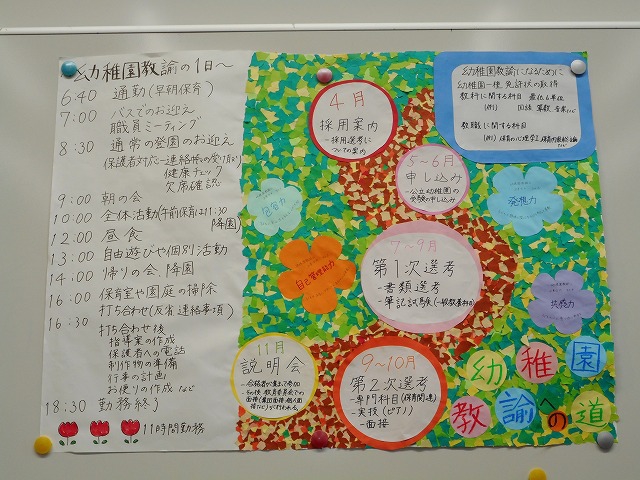 幼稚園教諭の1日～
6:40 通勤(早朝保育)
7:00 バスでのお迎え
職員ミーティング
8:30 通常の登園のお迎え
保護者対応…連絡帳の受け取り
健康チェック
欠席確認
9:00 朝の会
10:00 全体活動(午前保育は11:30降園)
12:00 昼食
13:00 自由遊びや個別活動
14:00 帰りの会、降園
16:00 保育室や園庭の掃除
16:30 打ち合わせ(反省、連絡事項)
打ち合わせ後
指導案の作成
保護者への電話
制作物の準備
行事の計画
お便りの作成 など
18:30 勤務終了
11時間勤務
4月
採用案内
-採用選考に
ついての案内
5～6月
申し込み
-公立幼稚園の
受験の申し込み
7～9月
第1次選考
-書類選考
-筆記試験(一般教養科目)
9～10月
第2次選考
-専門科目(保育関連)
-実技(ピアノ)
-面接
11月
説明会
-合格者が集まって参加
幼稚園教諭になるために
幼稚園一種免許状の取得
教科に関する科目 最低6単位
(例) 国語 算数 音楽など
教職に関する科目
包容力
自己管理能力
発想力
共感力
幼稚園
教諭への道